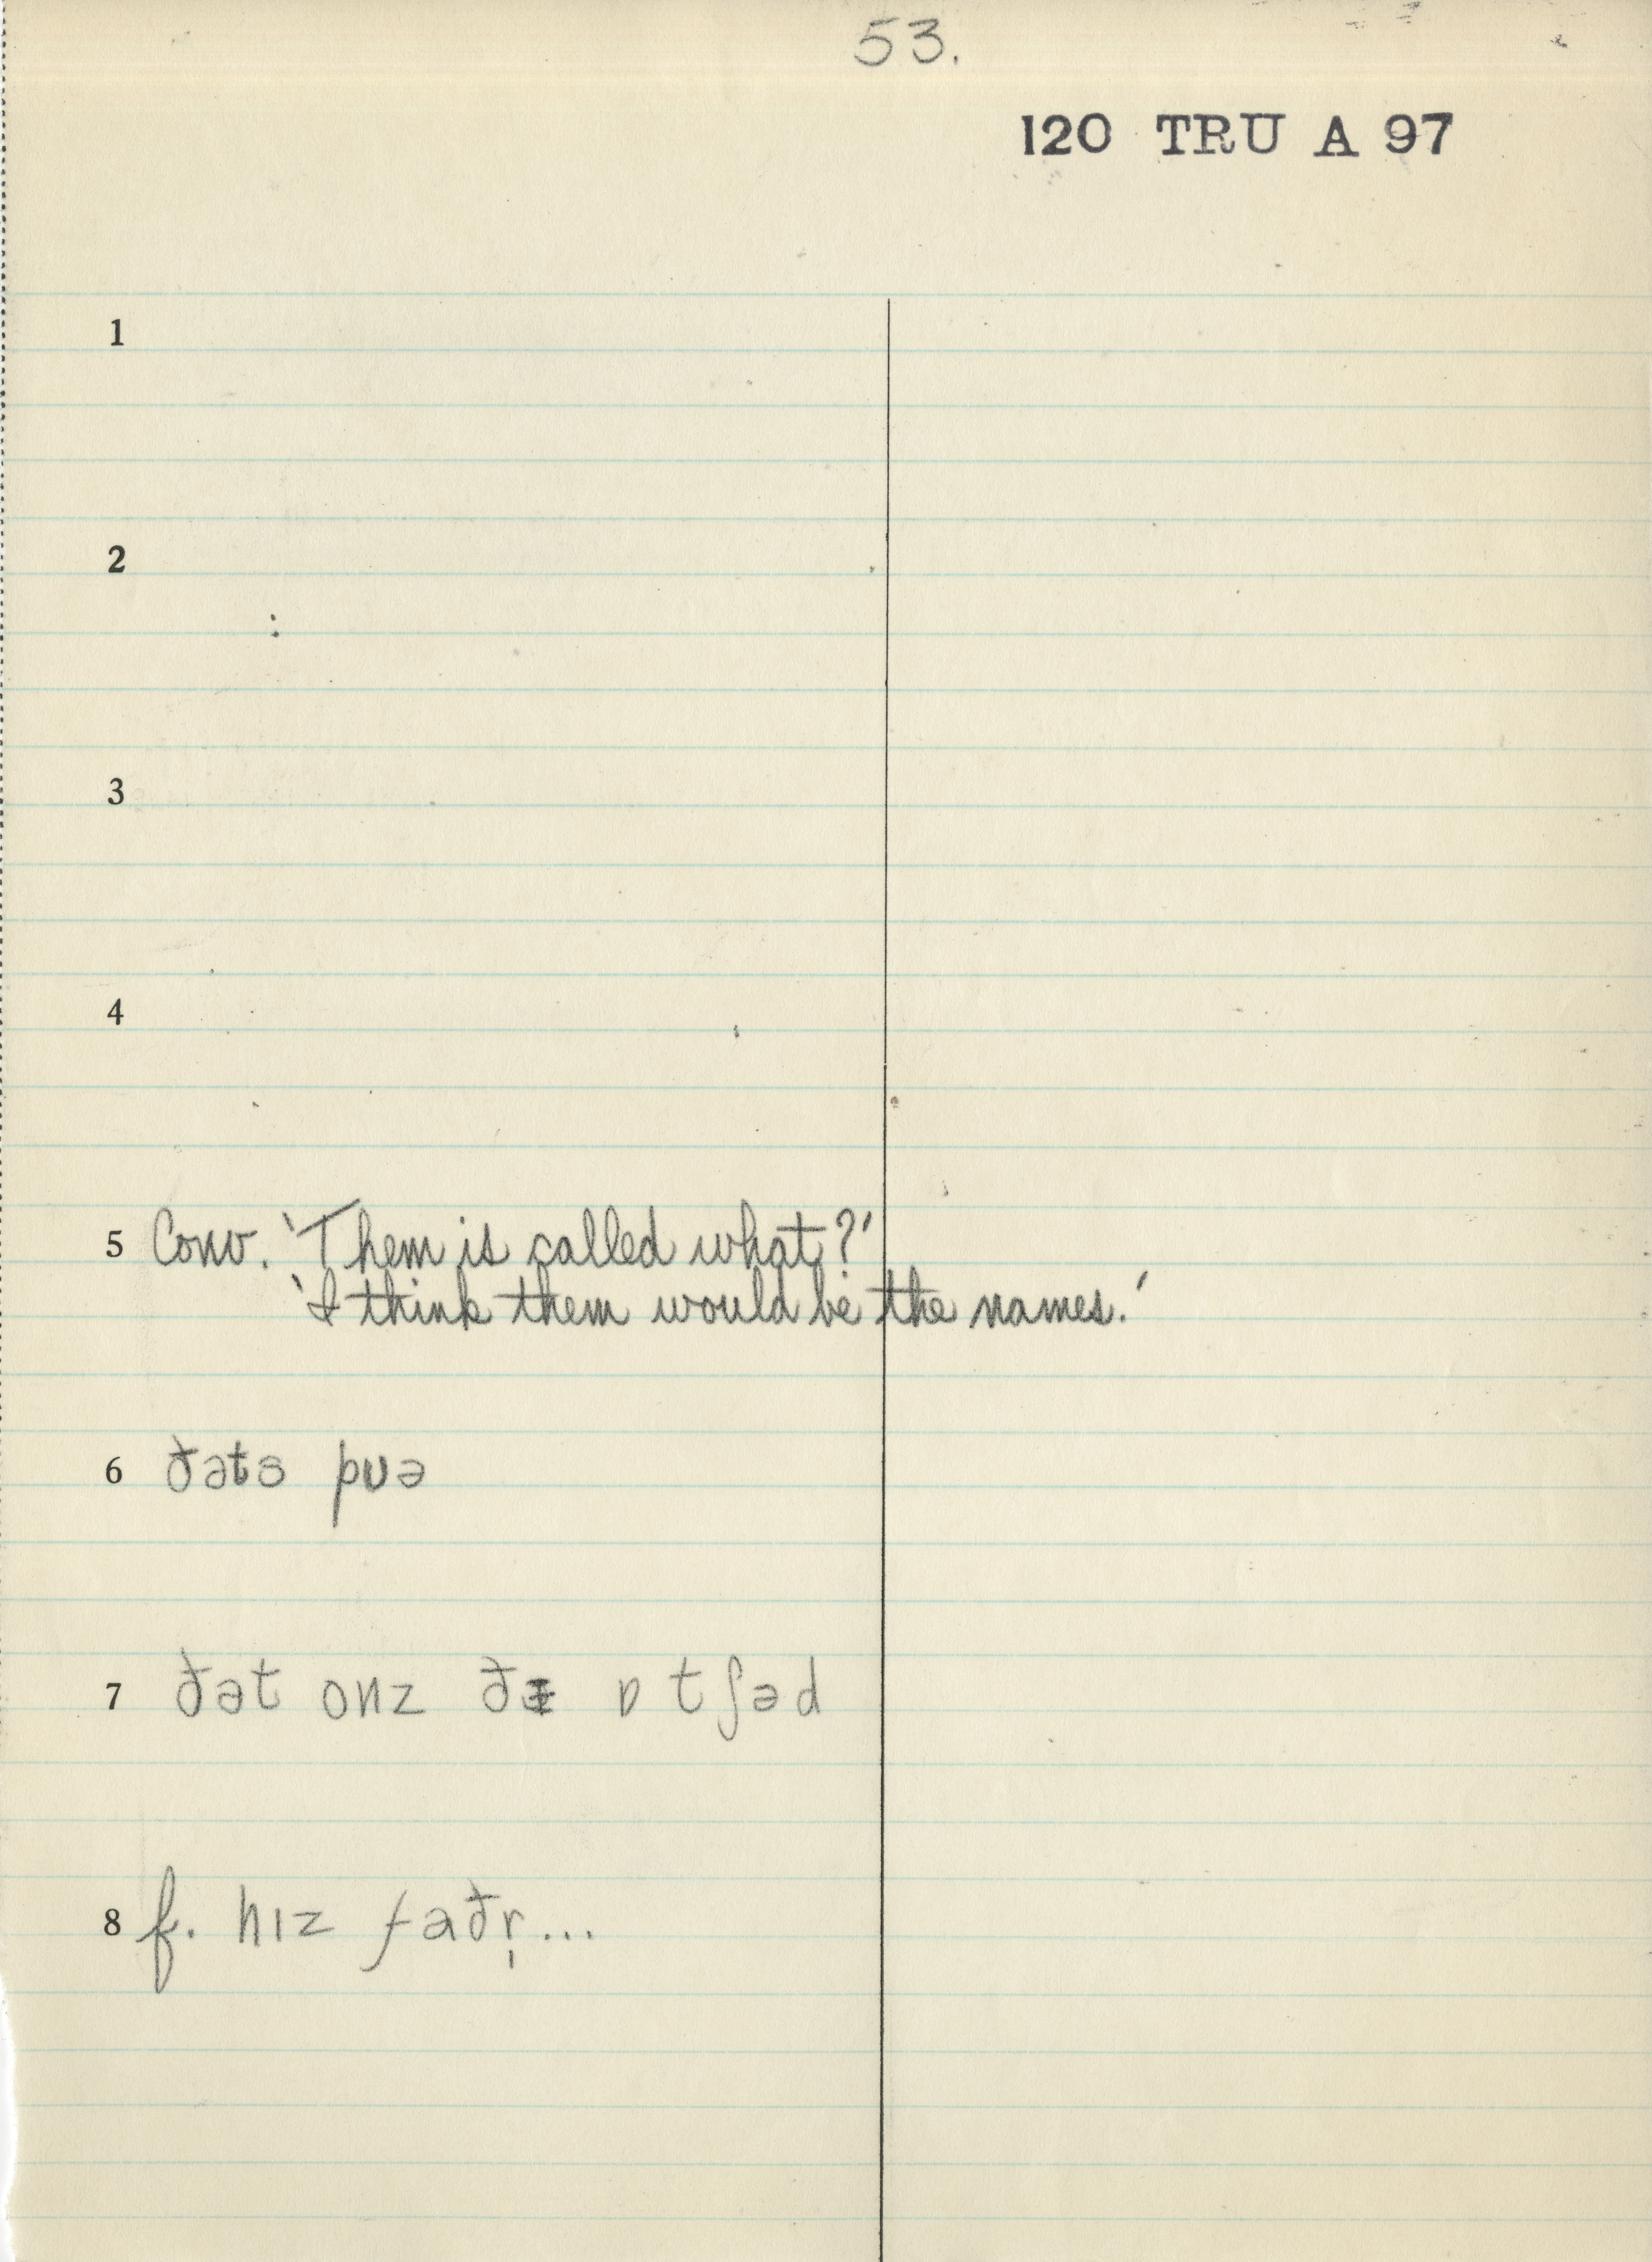 53.
120 TRU A 97
1
2
3
4
5 Conv. 'Them is called what?'
'I think them would be the names.'
6 ðəts pʊə
7 ðət onz ðɨ ɒtʃəd
8 f. hɪz faðr̩...